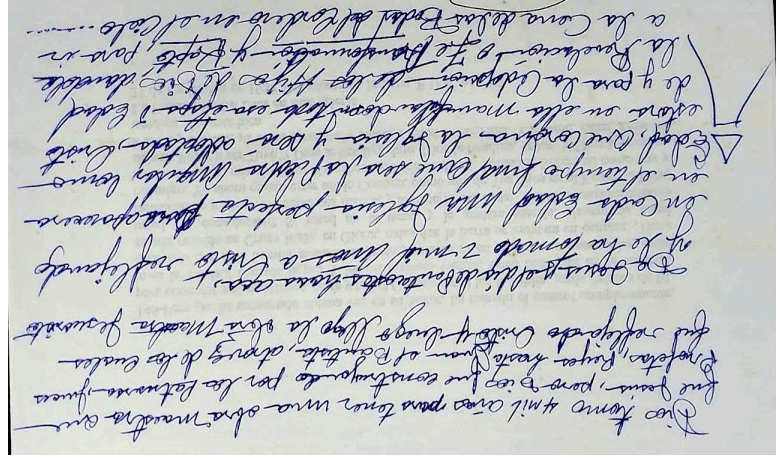 Dios tomo 4 mil años para tener una obra maestra que
fue Jesus, pero Dios fue construyendo por los Patriarcas, jueces
Profetas, Reyes hasta Juan el Bautista, atravez de los cuales
fue reflejando Cristo y luego llego la obra Maestra Jesucristo
Despues del dia de Pentecostes hasta aqui,
y le ha tomado 2 mil años a Cristo reflejando
en Cada Edad una Iglesia perfecta para aparecer
en el tiempo final que sera la piedra
Edad, que Corona la Iglesia y sera adoptada, Cristo
estara en ella manifestado en toda esa etapa o Edad
de y para la Adopcion de los Hijos de Dios, dandole
la Revelacion o Fe Transformacion y Rapto, para ir
a la Cena de las Bodas del Cordero en el Cielo......